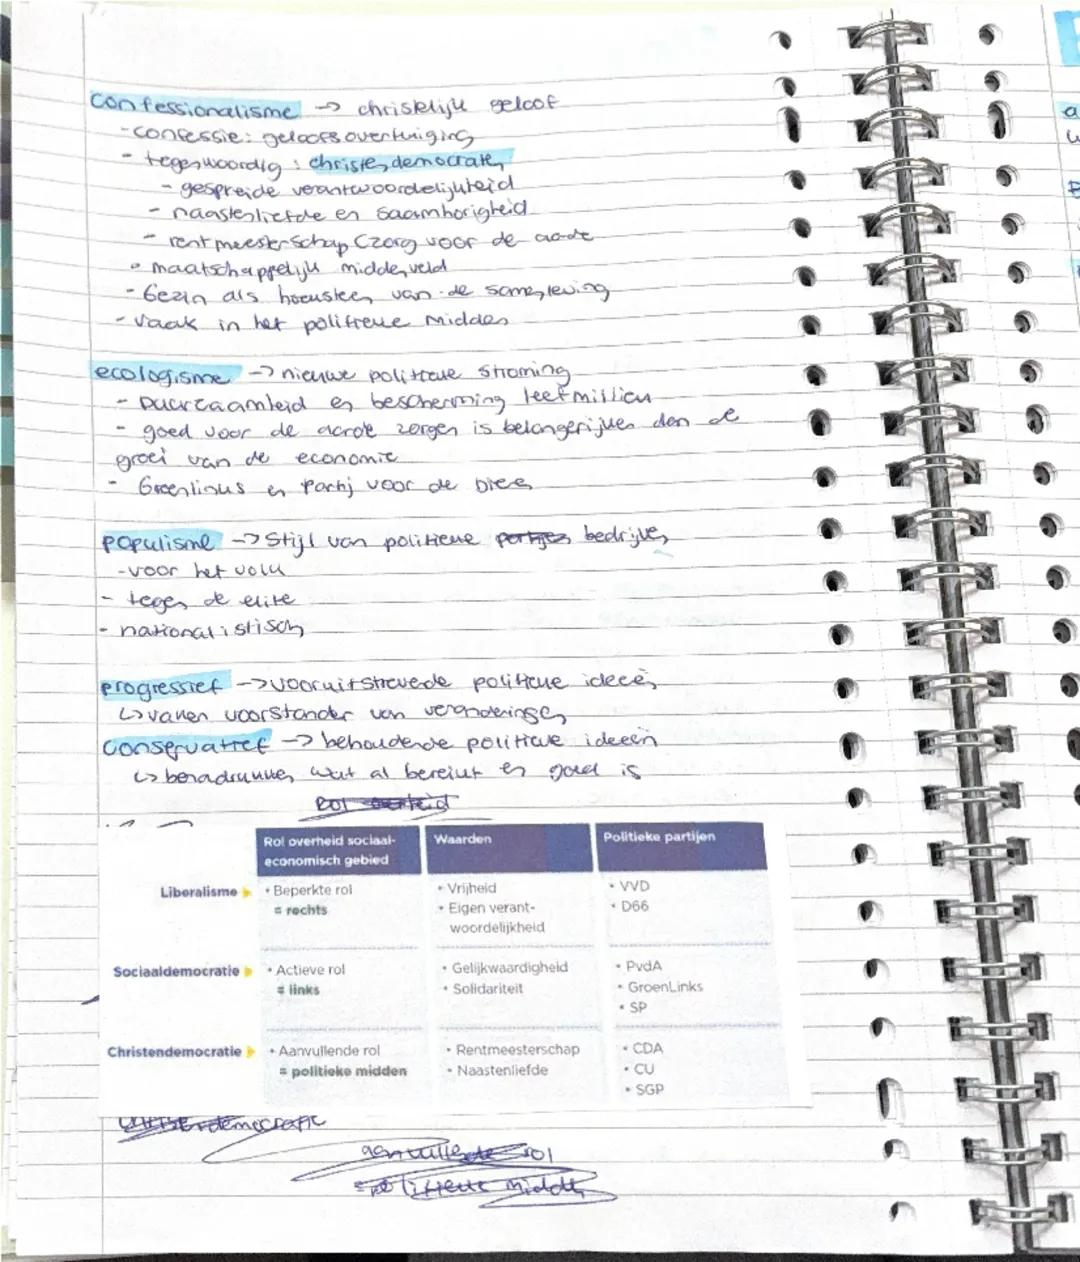 confessionalisme -> chriselijk geloof
- confessie: geloofsovertuiging
- tegenwoordig : christendemocraten
- gespreide verantwoordelijkheid
- naastenliefde en saamhorigheid
- rentmeesterschap (zorg voor de aarde
• maatschappelijk middenveld
- Gezin als hoeksteen van de samenleving
- vaak in het politieke midden
ecologisme -> nieuwe politieke stroming
- Duurzaamheid en bescherming leefmilieu
- goed voor de aarde zorgen is belangerijker dan de
groei van de economie
- Groenlinks en Partij voor de Dieren
populisme -> Stijl van politieke partijen bedrijven
- voor het volk
- tegen de elite
- nationalistisch
progressief -> vooruitstrevede politieke ideeën
↳ vaken voorstander van veranderingen
conservatief -> behoudende politieke ideeën
↳ benadrukken wat al bereikt en goed is
Rol
Rol overheid sociaal-economisch gebied Waarden Politieke partijen
Liberalisme • Beperkte rol • Vrijheid • VVD
= rechts • Eigen verant- • D66
woordelijkheid
Sociaaldemocratie • Actieve rol • Gelijkwaardigheid • PvdA
= links • Solidariteit • GroenLinks
• SP
Christendemocratie • Aanvullende rol • Rentmeesterschap • CDA
= politieke midden • Naastenliefde • CU
• SGP
aanvullende rol
= politieke midden